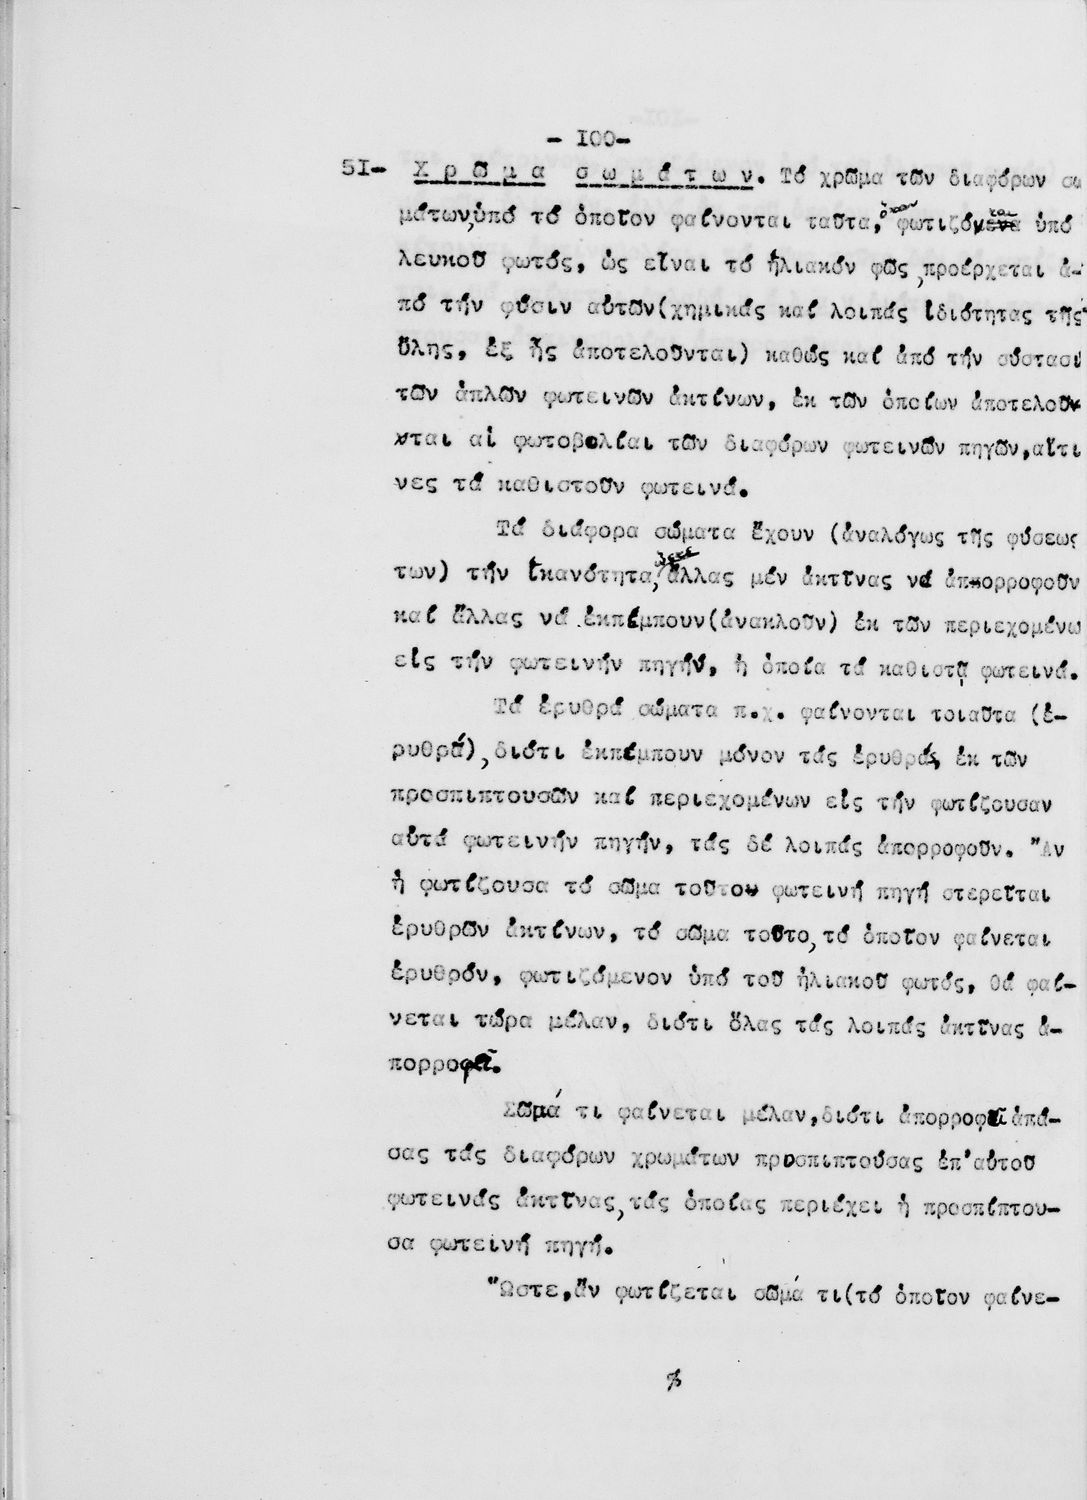 - 100-
51- Χρῶμα σωμάτων. Τό χρῶμα τῶν διαφόρων σω
μάτων, ὑπό τό ὁποῖον φαίνονται ταῦτα, ὅταν φωτιζόνται ὑπό
λευκοῦ φωτός, ὡς εἶναι τό ἡλιακόν φῶς, προέρχεται ἀ-
πό τήν φύσιν αὐτῶν(χημικάς καί λοιπάς ἰδιότητας τῆς
ὕλης, ἐξ ἧς ἀποτελοῦνται) καθώς καί ἀπό τήν σύστασι
τῶν ἁπλῶν φωτεινῶν ἀκτίνων, ἐκ τῶν ὁποίων ἀποτελοῦν
νται αἱ φωτοβολίαι τῶν διαφόρων φωτεινῶν πηγῶν,αἵτι
νες τά καθιστοῦν φωτεινά.
Τά διάφορα σώματα ἔχουν (ἀναλόγως τῆς φύσεως
των) τήν ἱκανότητα, ὥστε ἄλλας μέν ἀκτῖνας νά ἀπορροφοῦν
καί ἄλλας νά ἐκπέμπουν(ἀνακλοῦν) ἐκ τῶν περιεχομένω
εἰς τήν φωτεινήν πηγήν, ἡ ὁποία τά καθιστᾷ φωτεινά.
Τά ἐρυθρά σώματα π.χ. φαίνονται τοιαῦτα (ἐ-
ρυθρά), διότι ἐκπέμπουν μόνον τάς ἐρυθράς, ἐκ τῶν
προσπιπτουσῶν καί περιεχομένων εἰς τήν φωτίζουσαν
αὐτά φωτεινήν πηγήν, τάς δέ λοιπάς ἀπορροφοῦν. Ἄν
ἡ φωτίζουσα τό σῶμα τοῦτου φωτεινή πηγή στερεῖται
ἐρυθρῶν ἀκτίνων, τό σῶμα τοῦτο, τό ὁποῖον φαίνεται
ἐρυθρόν, φωτιζόμενον ὑπό τοῦ ἡλιακοῦ φωτός, θά φαί-
νεται τώρα μέλαν, διότι ὅλας τάς λοιπάς ἀκτῖνας ἀ-
πορροφᾶ.
Σῶμά τι φαίνεται μέλαν,διότι ἀπορροφᾶ ἁπά-
σας τάς διαφόρων χρωμάτων προσπιπτούσας ἐπ'αὐτοῦ
φωτεινάς ἀκτῖνας, τάς ὁποίας περιέχει ἡ προσπίπτου-
σα φωτεινή πηγή.
Ὥστε,ἄν φωτίζεται σῶμά τι(τό ὁποῖον φαίνε-